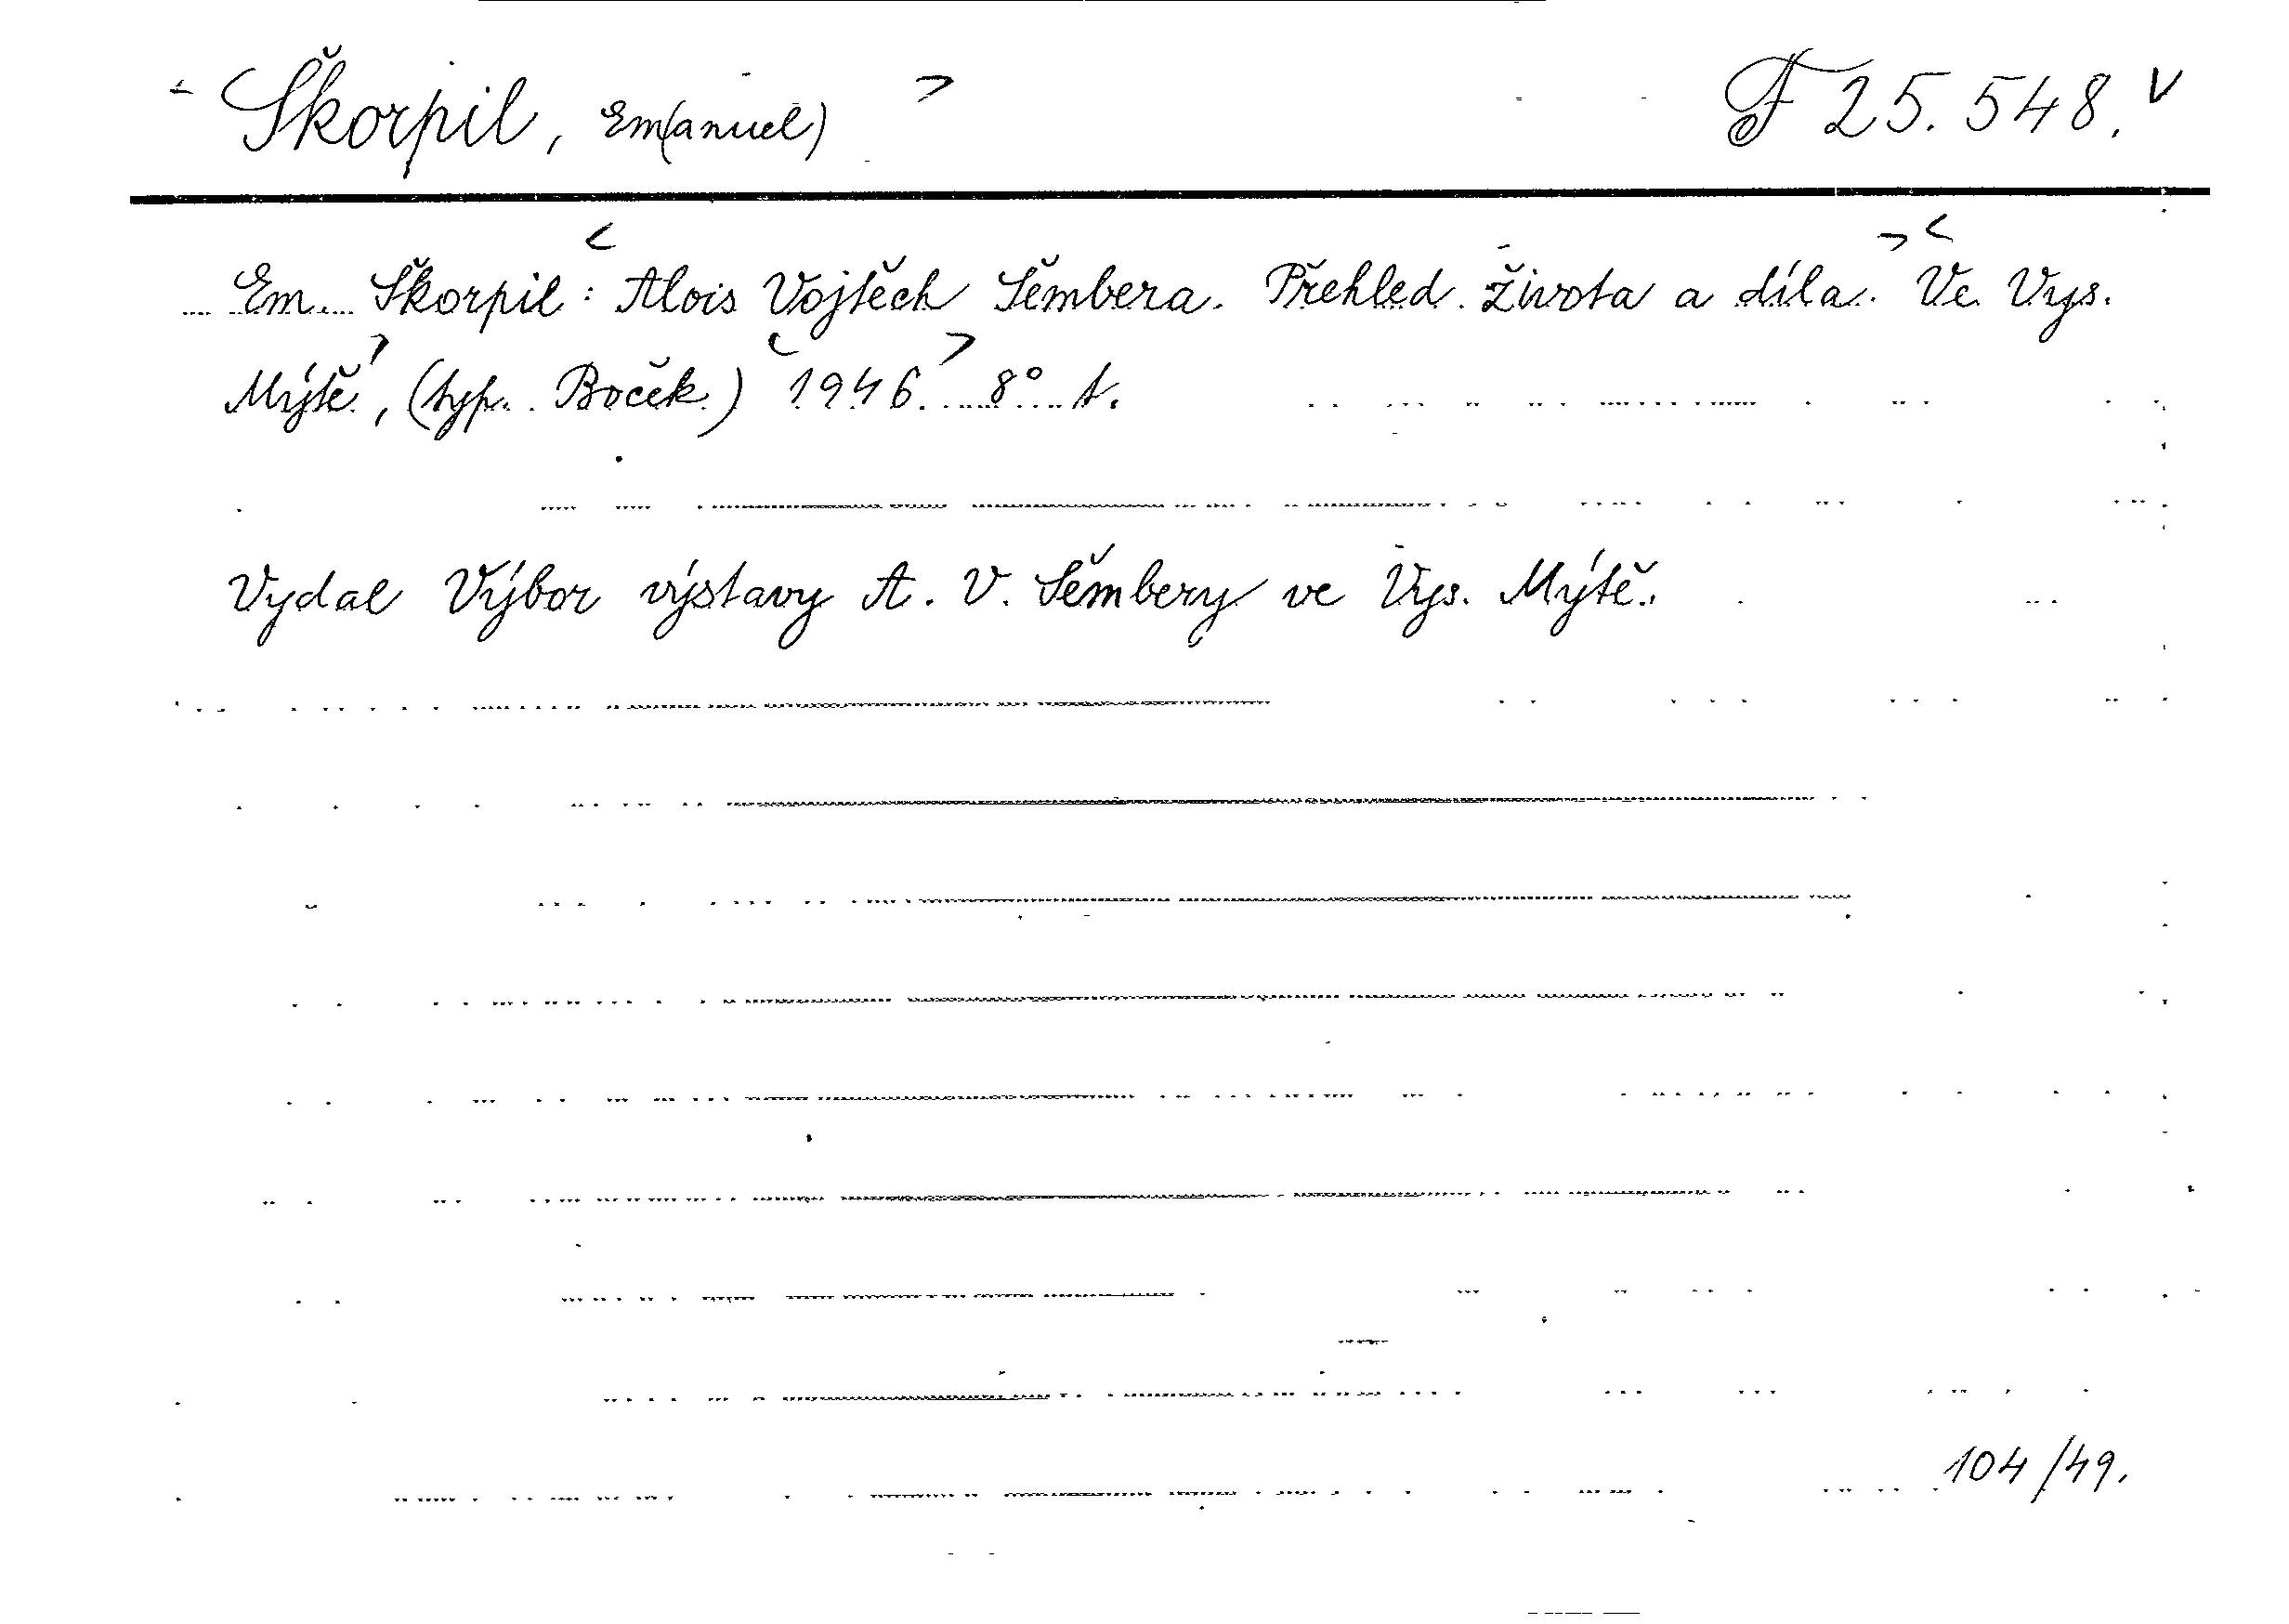 Škorpil, Em(anuel) F 25.548.
Em. Škorpil: Alois Vojtěch Šembera. Přehled života a díla. Ve Vys.
Mýtě, (typ. Boček) 1946. 8° s.
Vydal Výbor výstavy A. V. Šembery ve Vys. Mýtě.
104/49.